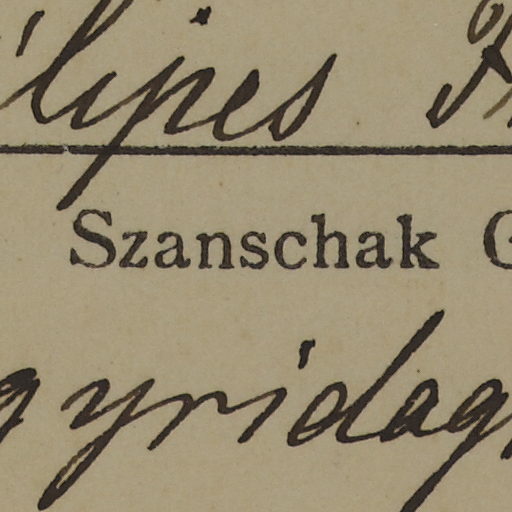 ilipes
Szanschak
gyridag